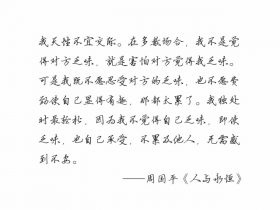 我天性不宜交际。在多数场合，我不是觉
得对方乏味，就是害怕对方觉得我乏味。
可是我既不愿忍受对方的乏味，也不愿费
劲使自己显得有趣，那都太累了。我独处
时最轻松，因为我不觉得自己乏味，即使
乏味，也自己承受，不累及他人，无需感
到不安。
——周国平《人与永恒》